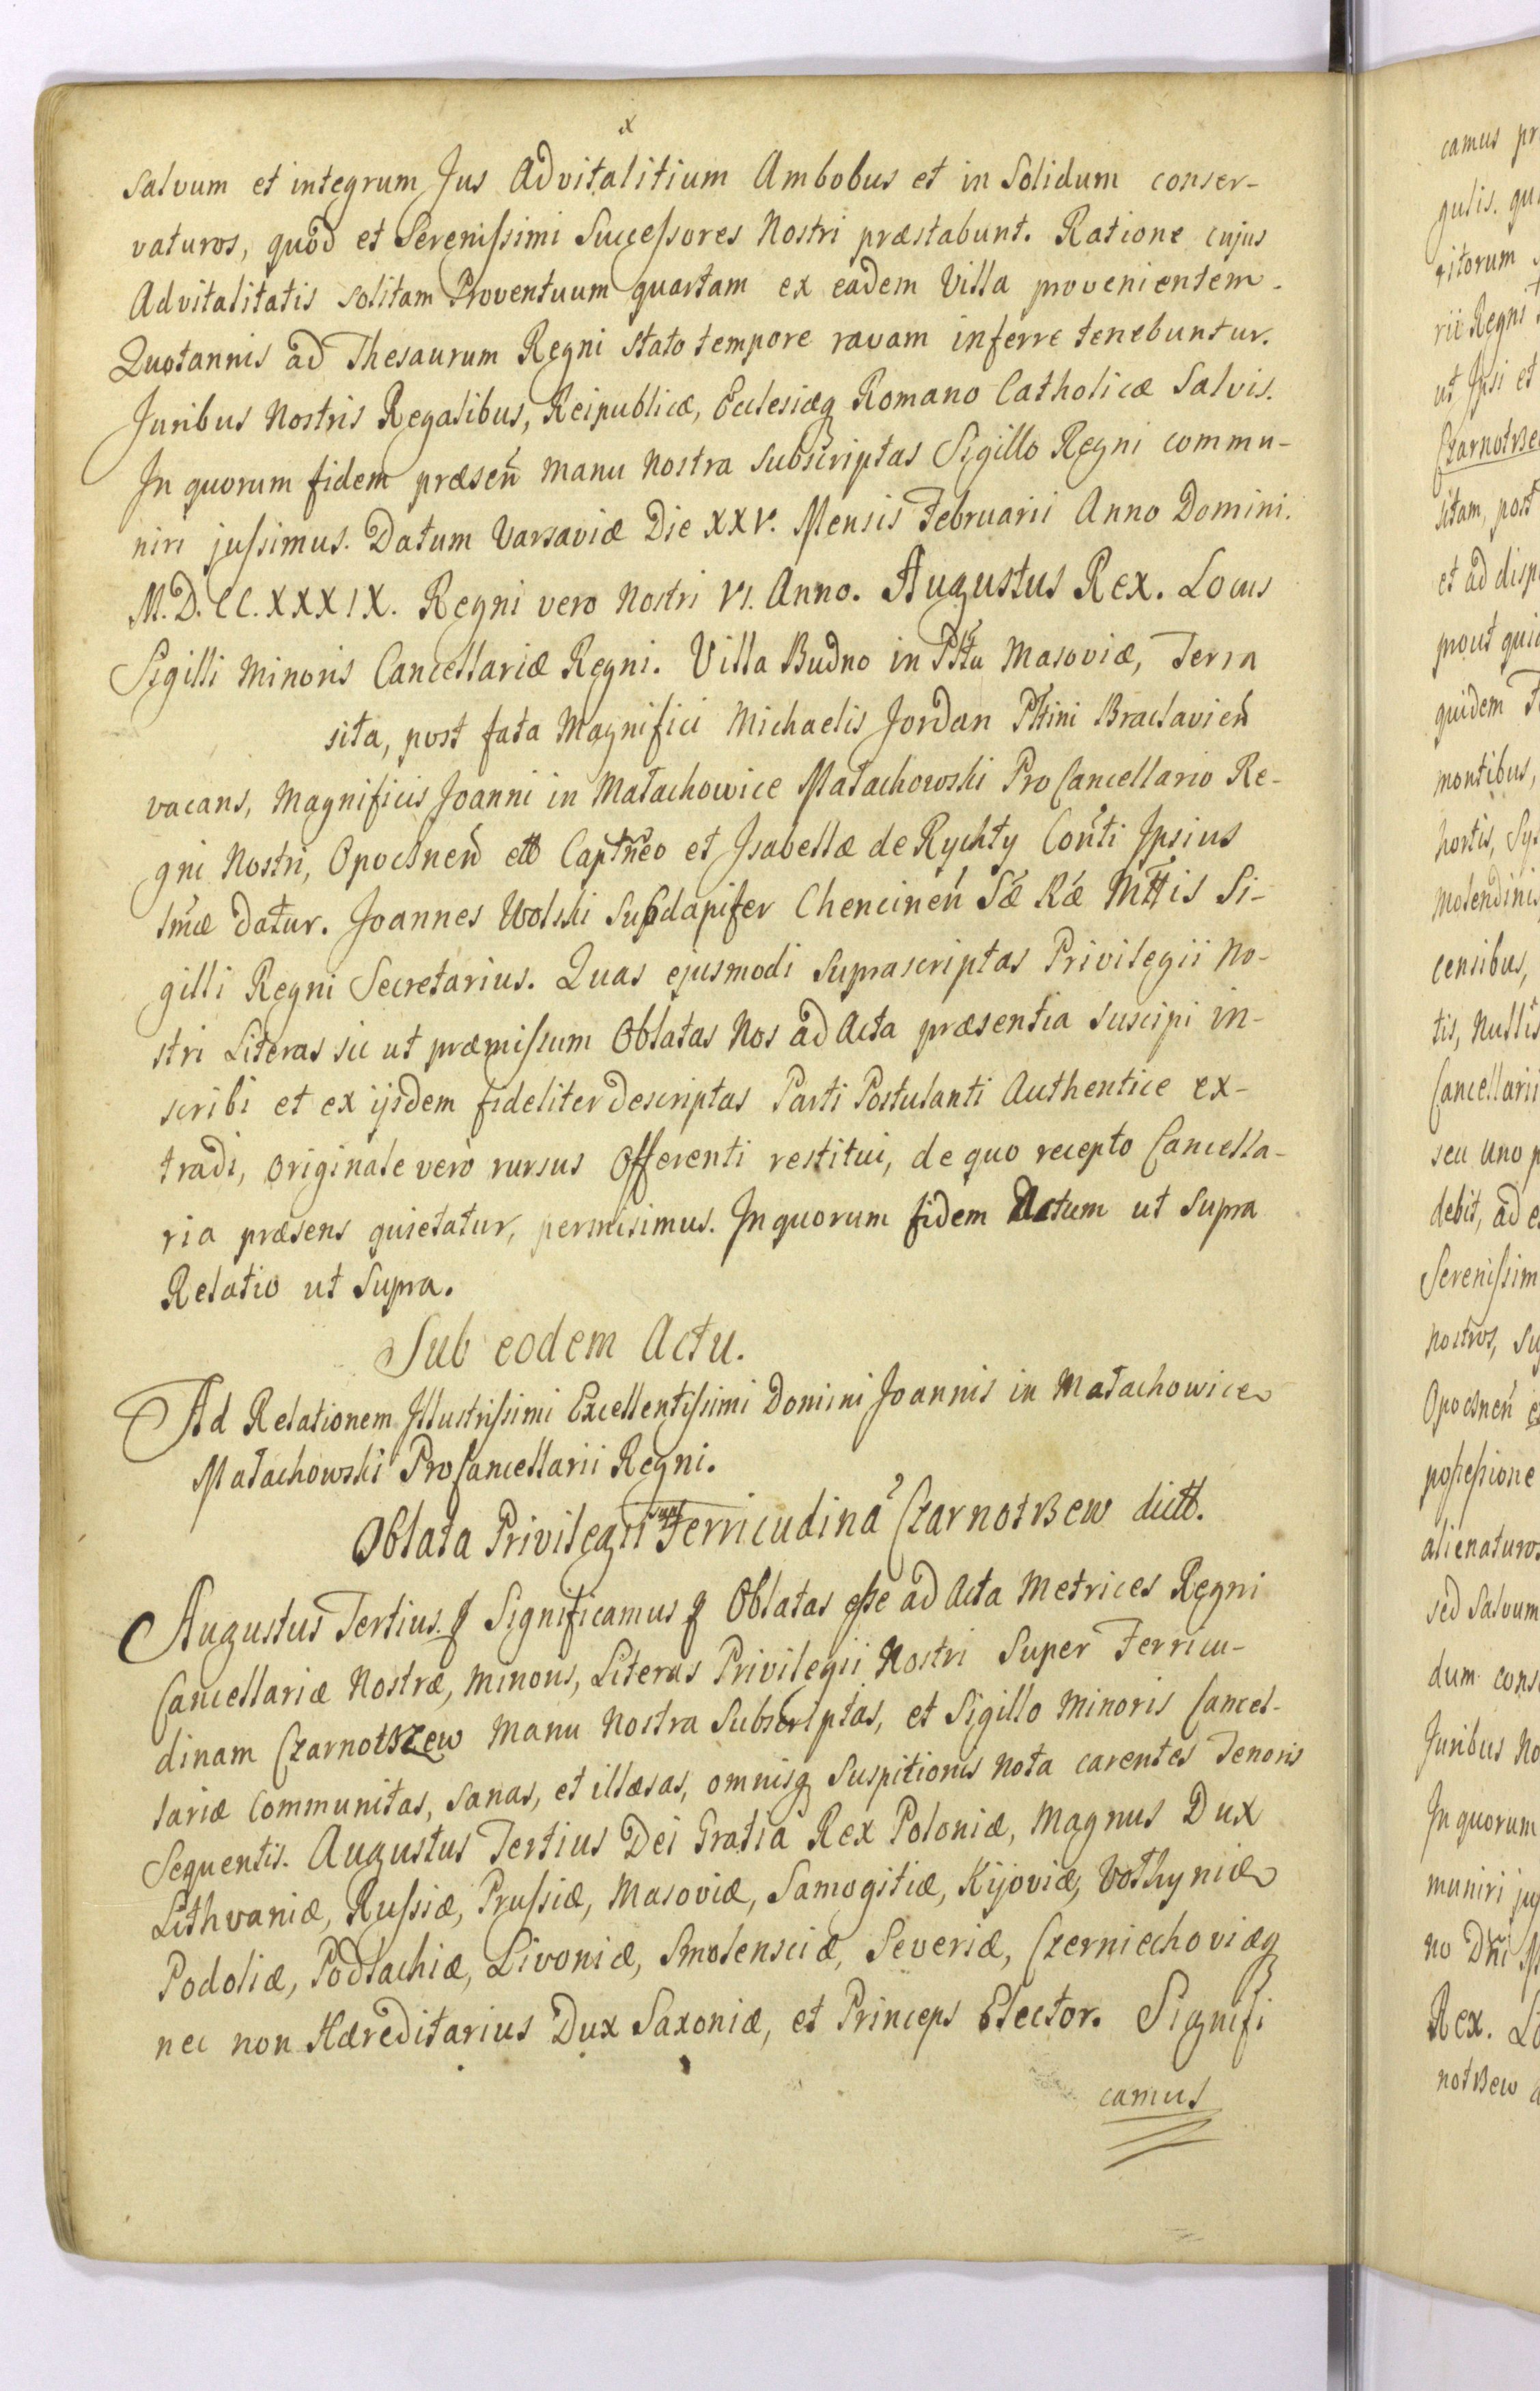 x
salvum et integrum Jus Advitalitium Ambobus et in Solidum conser-
vaturos, quod et Serenissimi Successores Nostri præstabunt. Ratione cujus
Advitalitatis solitam Proventuum quartam ex eadem Villa provenientem.
Quotannis ad Thesaurum Regni stato tempore ravam inferre tenebuntur.
Juribus Nostris Regalibus, Reipublicæ, Ecclesiæq Romano Catholicæ Salvis.
In quorum fidem præseñ manu Nostra subscriptas Sigillo Regni commu-
niri jussimus. Datum Varsaviæ Die XXV. Mensis Februarii Anno Domini.
M.D.CC.XXXIX. Regni vero Nostri VI. Anno. Augustus Rex. Locus
Sigilli Minoris Cancellariæ Regni. Villa Budno in Pttu Masoviæ, Terra
sita, post fata Magnifici Michaelis Jordan Pttini Braclavień
vacans, Magnificis Joanni in Małachowice Małachowski ProCancellario Re-
gni Nostri, Opoczneń ett Captneo et Isabellæ de Rychty Cońti Ipsius
lmæ datur. Joannes Wolski Subdapifer Chencineń Sæ Ræ Mttis Si-
gilli Regni Secretarius. Quas ejusmodi suprascriptas Privilegii No-
stri Literas sic ut præmissum Oblatas Nos ad Acta præsentia suscipi in-
scribi et ex ijsdem fideliter descriptas Parti Postulanti Authentice ex-
tradi, originale vero rursus Offerenti restitui, de quo recepto Cancella-
ria præsens quietatur, permisimus. In quorum fidem Datum ut supra
Relatio ut Supra.
Sub eodem Actu.
Ad Relationem Illustrissimi Excellentissimi Domini Joannis in Małachowice
Małachowski ProCancellarii Regni.
Oblata Privilegii sup Terricudina Czarnotrzew dictt.
Augustus Tertius. Significamus Oblatas esse ad Acta Metrices Regni
Cancellariæ Nostræ, minoris, Literas Privilegii Nostri Super Terricu-
dinam Czarnotrzew Manu Nostra Subscriptas, et Sigillo Minoris Cancel-
lariæ Communitas, sanas, et illæsas, omnisq Suspitionis nota carentes Tenoris
Sequentis. Augustus Tertius Dei Gratia Rex Poloniæ, Magnus Dux
Lithvaniæ, Russiæ, Prussiæ, Masoviæ, Samogitiæ, Kijoviæ, Volhyniæ
Podoliæ, Podlachiæ, Livoniæ, Smolensciæ, Severiæ, Czerniechoviæq
nec non Hæreditarius Dux Saxoniæ, et Princeps Elector. Signifi
camus
camus pr
gulis. qui
ritorum
rii Regni
ut Ipsi et
Czarnotrze
sitam, post
et ad disp
prout qui
quidem
montibus,
hortis, Sy
Molendinis
censibus,
tis, Nullis
Cancellarii
seu uno p
debit, ad e
Serenissim
nostros, su
Opoczneń
possessione
alienaturos
sed salvum
dum cons
Juribus No
In quorum
muniri jus
no Dñi M
Rex. Lo
notrzew a